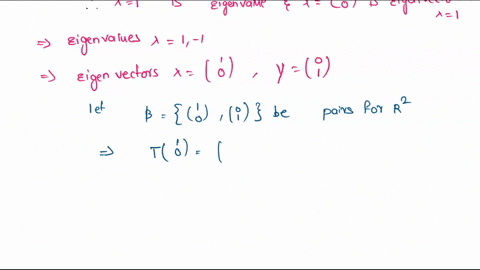 ∴ λ=1 is eigenvalue & x = (0) is
λ=1
⇒ eigenvalues λ = 1, -1
⇒ eigen vectors x = (1 0), y = (0 1)
let B = {(1 0), (0 1)} be pairs for R²
⇒ T(1 0) = (